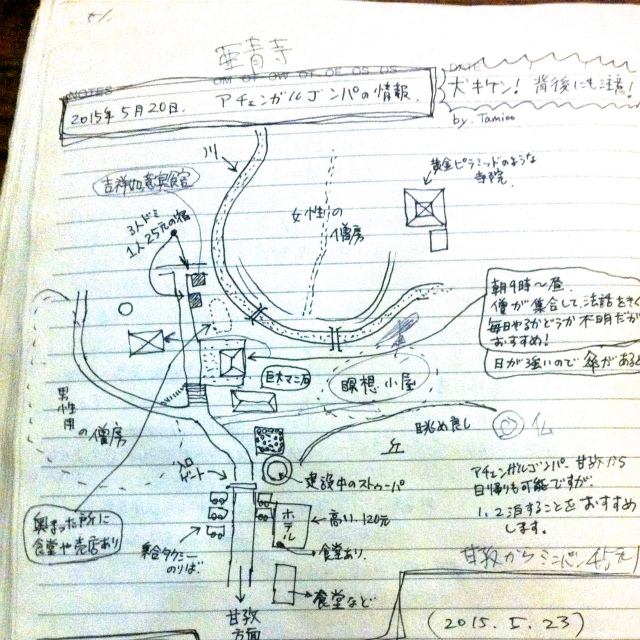 亜青寺
NOTES
DATE
2015年5月20日. アチェンガルゴンパの情報.
犬キケン! 背後にも注意!
by. Tamioo
川
黄金ピラミッドのような
寺院.
吉祥如意
女性用の
僧房
3人ドミ
1人25元の宿
朝9時～昼.
僧が集合して、法話をきく
毎日やるかどうか不明だが
おすすめ!
日が強いので傘がある
巨大マニ
瞑想小屋
男性用
の僧房
眺め良し
仏
丘
入口
ゲート
建設中のストゥーパ
アチェンガルゴンパ. 甘孜から
日帰りも可能ですが、
1、2泊することをおすすめ
します。
奥まった所に
食堂や売店あり
乗合タクシー
のりば.
ホテル
高い. 120元
食堂あり.
食堂など
甘孜
方面
甘孜からミニバン
(2015. 5. 23)